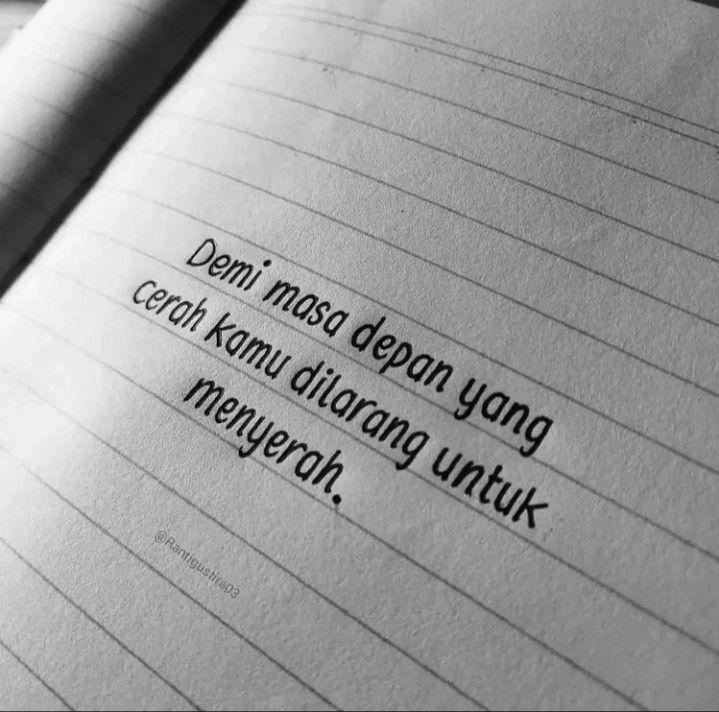 Demi masa depan yang
cerah kamu dilarang untuk
menyerah.
@Rantigustira03